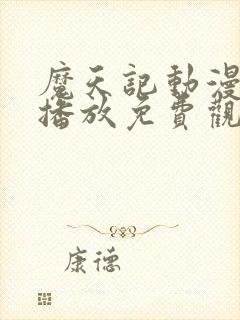 魔天記動漫
播放免費觀
康德